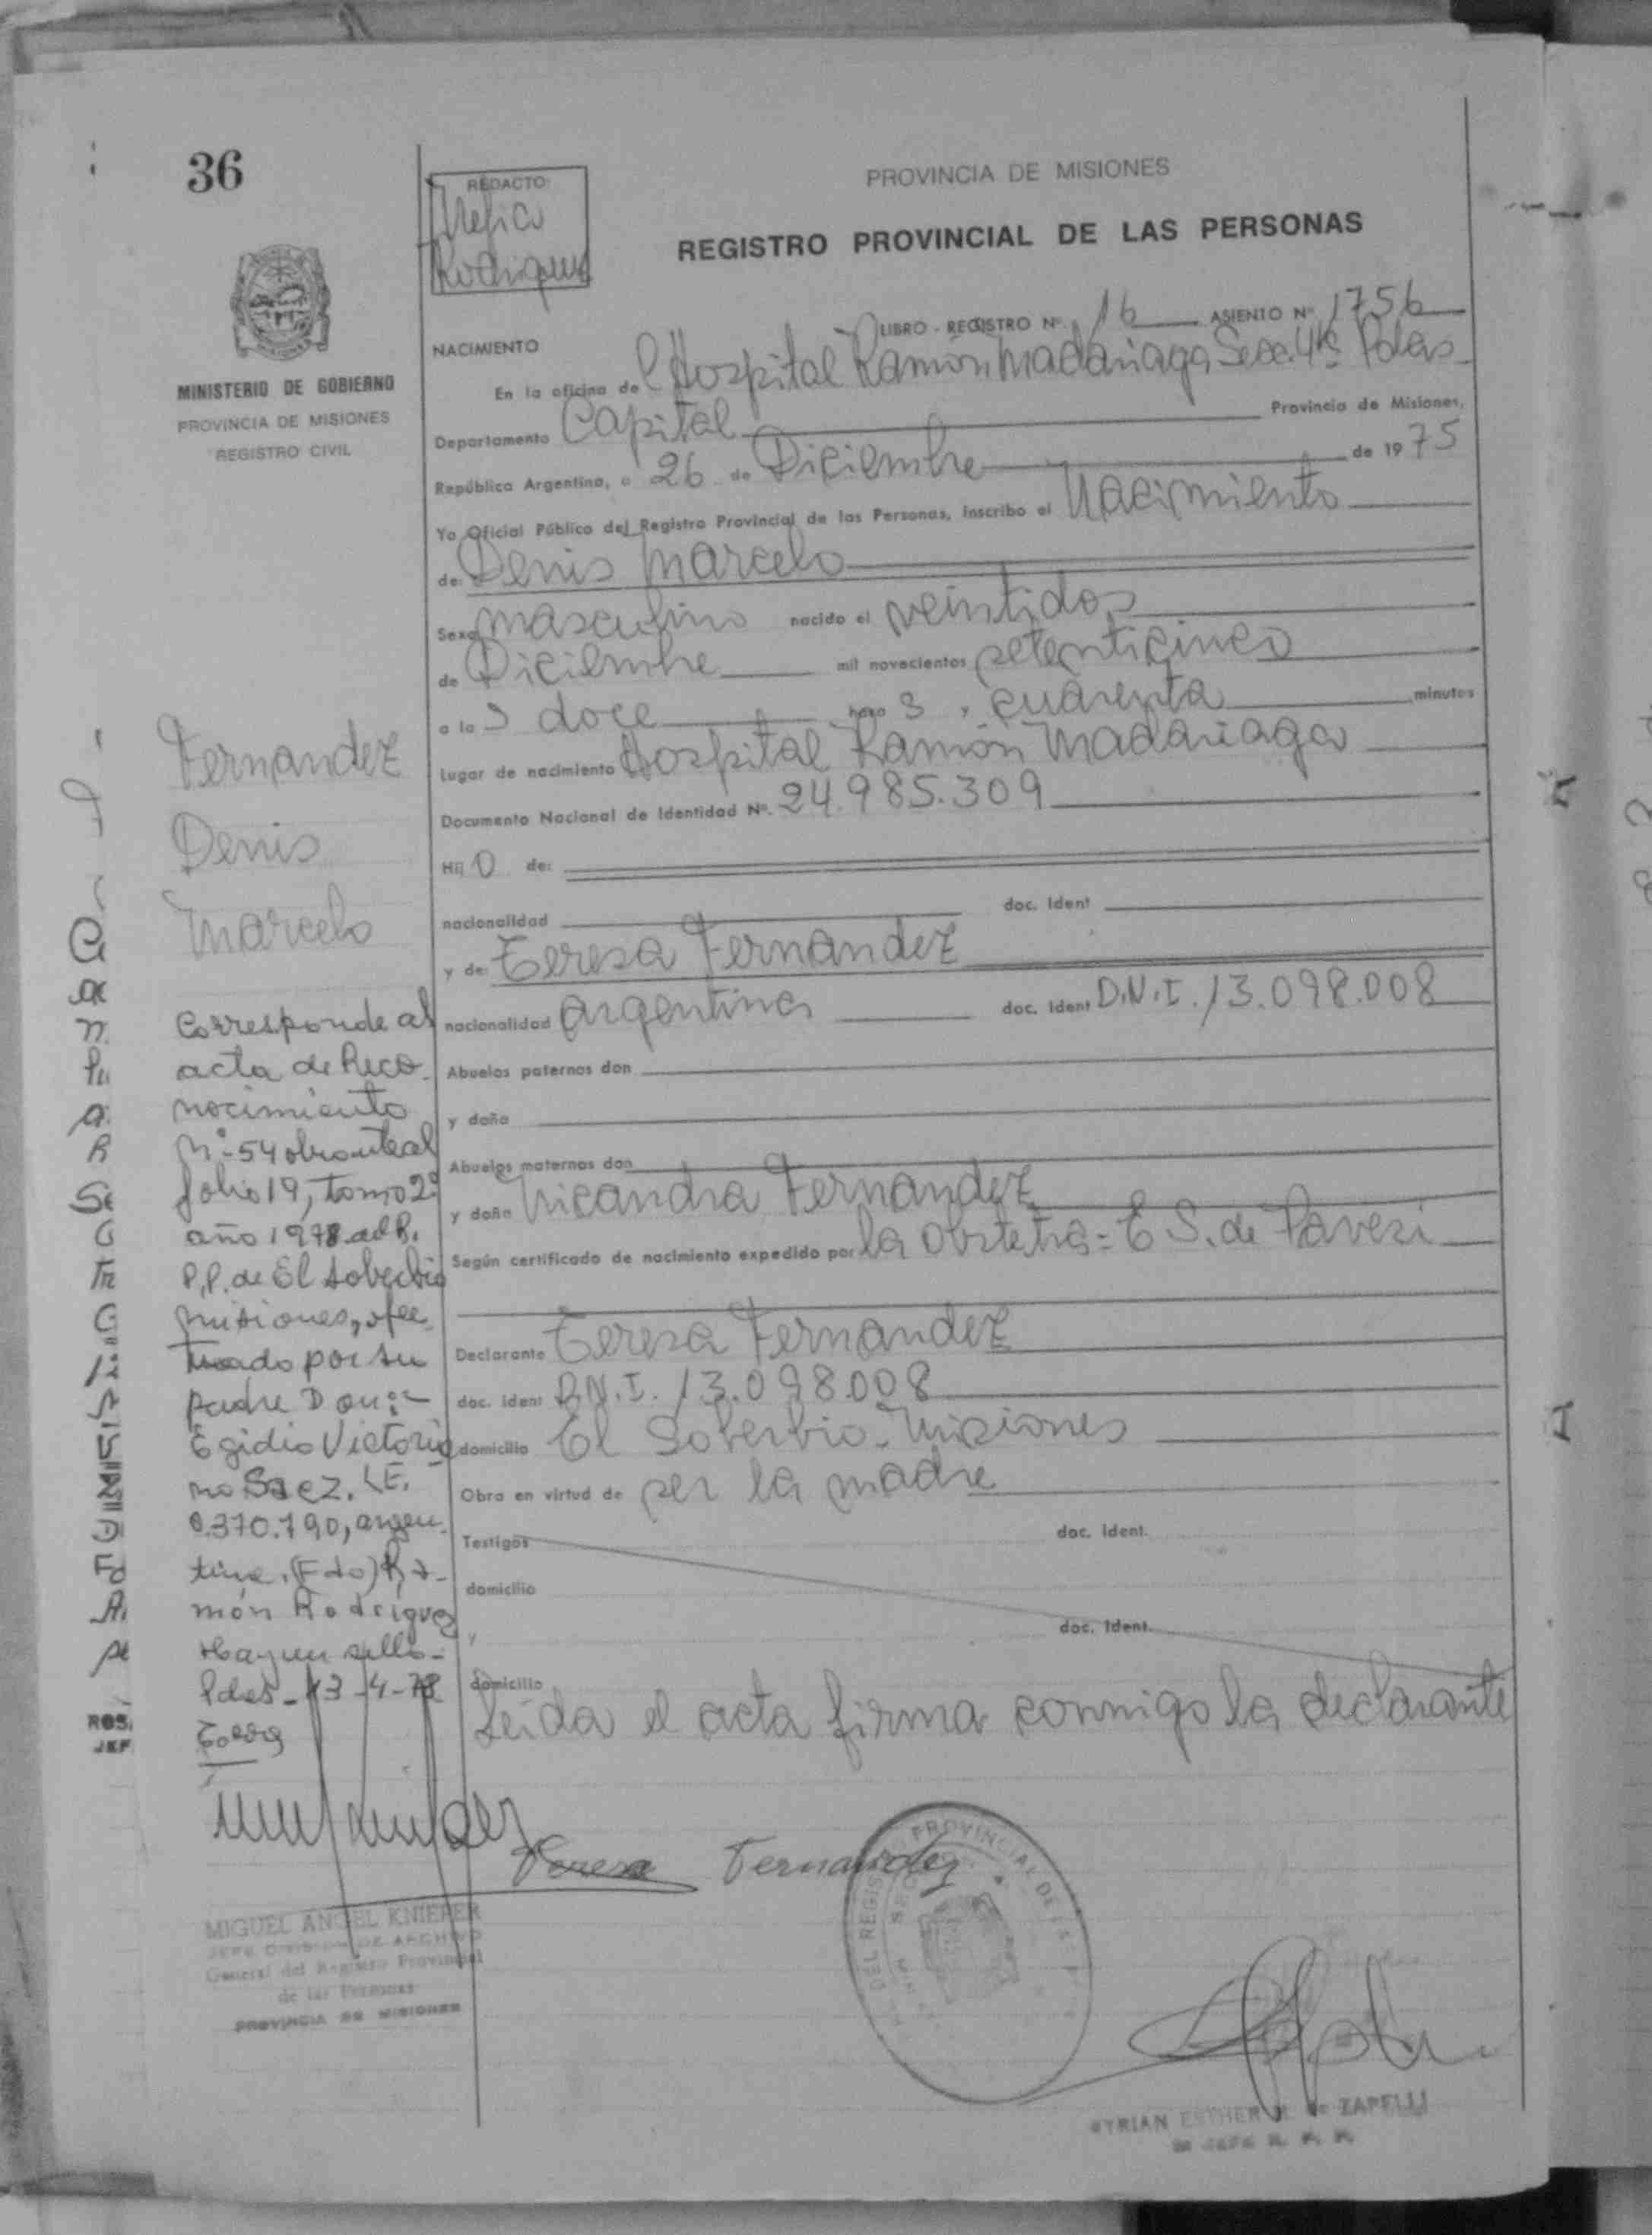 36
REDACTO:
Rodriguez
PROVINCIA DE MISIONES
REGISTRO PROVINCIAL DE LAS PERSONAS
MINISTERIO DE GOBIERNO
PROVINCIA DE MISIONES
REGISTRO CIVIL
LIBRO - REGISTRO Nº 16 ASIENTO Nº 1756
NACIMIENTO
En la oficina del Hospital Ramón Madariaga Secc. 4ta Pdas
Departamento Capital Provincia de Misiones,
República Argentina, a 26 de Diciembre de 1975
Yo Oficial Público del Registro Provincial de las Personas, inscribo el Nacimiento
de: Denis Marcelo
Sexo masculino nacido el veintidos
de Diciembre mil novecientos setenticinco
a las doce horas y cuarenta minutos
Lugar de nacimiento Hospital Ramón Madariaga
Documento Nacional de Identidad Nº. 24.985.309
Hijo de:
nacionalidad doc. Ident
y de: Teresa Fernandez
nacionalidad argentina doc. Ident D.N.I. 13.098.008
Abuelos paternos don
y doña
Abuelos maternos don
y doña Nicandra Fernandez
Según certificado de nacimiento expedido por la Obstetra = E S. de Pavesi
Declarante Teresa Fernandez
doc. Ident D.N.I. 13.098.008
domicilio El Soberbio - Misiones
Obra en virtud de ser la madre
Testigos doc. Ident.
domicilio
y doc. Ident.
domicilio
Leida el acta firma conmigo la declarante
Fernandez
Denis
Marcelo
Corresponde al
acta de Reco
nocimiento
Nº 54 obrante al
folio 19, tomo 2º
año 1978 del R.
P.P. de El Soberbio
Misiones, efec
tuado por su
padre Don:-
Egidio Victoria
no Saez. L.E.
8.370.790, argen
tino. (Fdo) Ra-
món Rodríguez
Hay un sello-
Pdas - 13-4-78
Teresa Fernandez
MIGUEL ANGEL KNIEPER
JEFE DIVISION DE ARCHIVO
General del Registro Provincial
de las Personas
PROVINCIA DE MISIONES
DEL REGISTRO PROVINCIAL DE
MYRIAN ESTHER de ZAPELLI
JEFE R. P. P.
ROS.
JEF